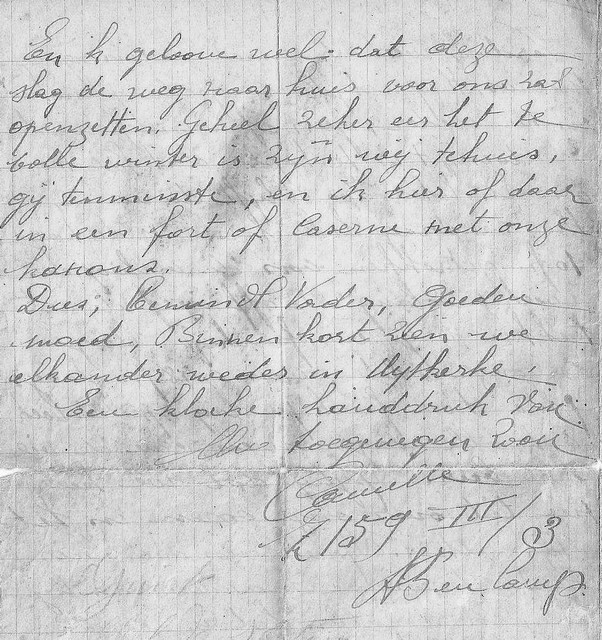 En ik geloove wel dat deze
slag de weg naar huis voor ons zal
openzetten. Geheel zeker eer het te
volle winter is zijn wij tehuis,
gij tenminste, en ik hier of daar
in een fort of caserne met onze
kanons.
Dus, Bemindt Vader, Goeden
moed, Binnen kort zien we
elkander weder in Uytkerke.
Een kloeke handdruk van
Uw toegenegen zoon
Camille
Z 159 III/3